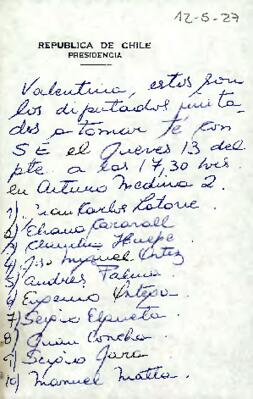 12-5-27
REPUBLICA DE CHILE
PRESIDENCIA
Valentina, estos son
los diputados invita
dos a tomar té con
SE el Jueves 13 del
pte. a las 17,30 hrs.
en Arturo Medina 2.
1) Juan Carlos Latorre.
2) Eliana Caraball
3) Claudio Huepe.
4) Manuel Ortiz
5) Andrés Palma.
6) Eugenio Ortega.
7) Sergio Elgueta.
8) Juan Concha.
9) Sergio Jara.
10) Manuel Matta.